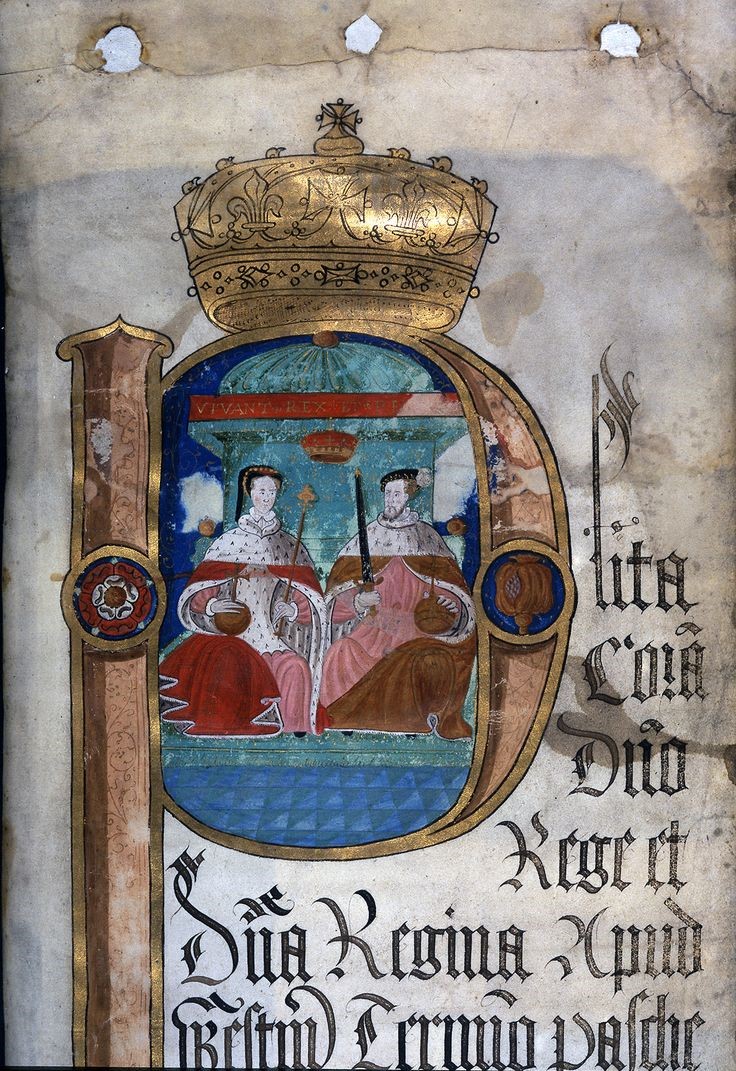 VIVANT REX ET
Plita
Corã
Dño
Rege et
Dña Regina Apud
Westm̃ Termiño pasche